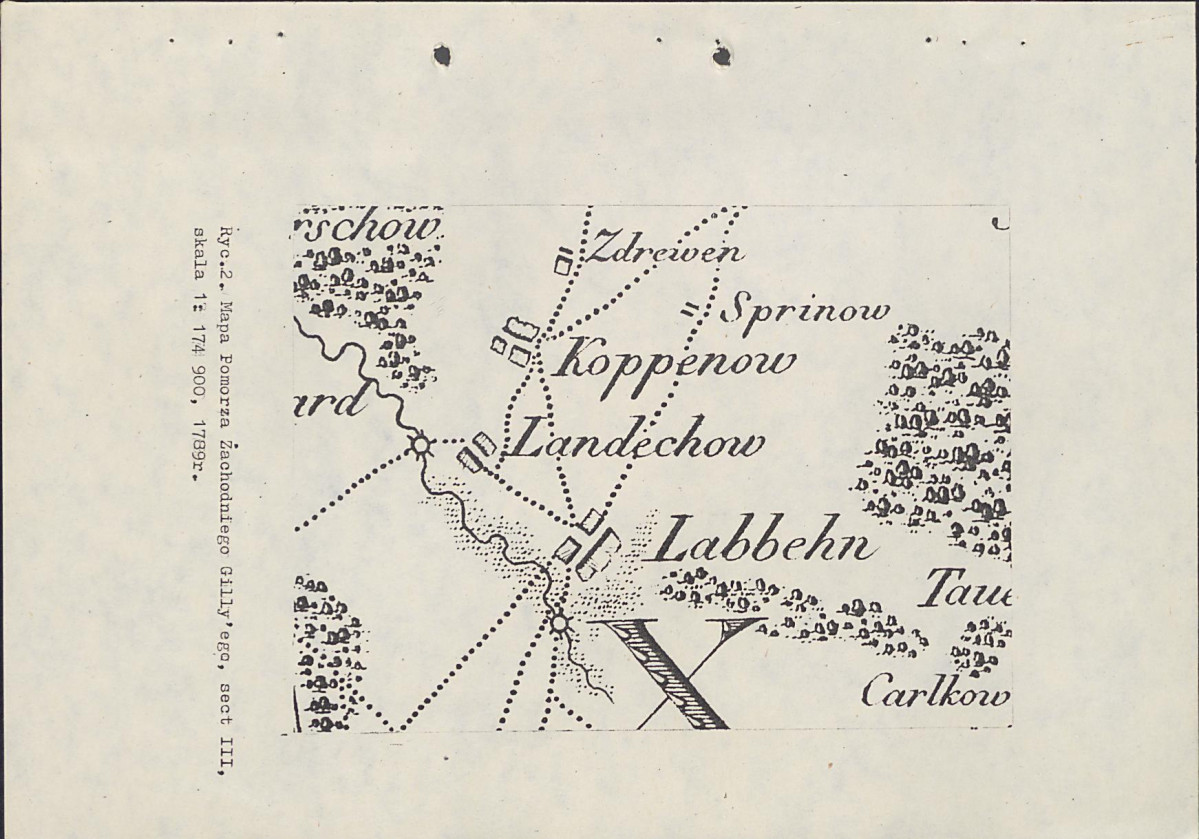 rschow
Zdrewen
Sprinow
Koppenow
ard
Landechow
Labbehn
Taue
X
Carlkow
Ryc.2. Mapa Pomorza Zachodniego Gilly'ego, sect III,
skala 1: 174 900, 1789r.